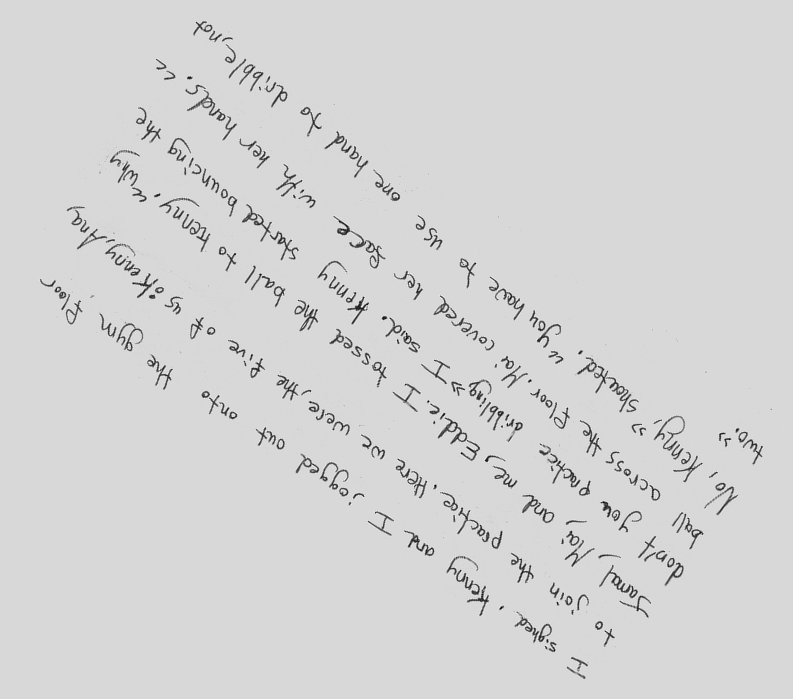 I signed. Kenny and I jogged out onto the gym floor
to join the practice. Here we were, the five of us: Kenny, Ana,
Jamal, Mai, and me, Eddie. I tossed the ball to Kenny. "Why
don't you practice dribbling" I said. Kenny started bouncing the
ball across the floor. Mai covered her face with her hands. "
No, Kenny, " shouted. " You have to use one hand to dribble, not
two. "